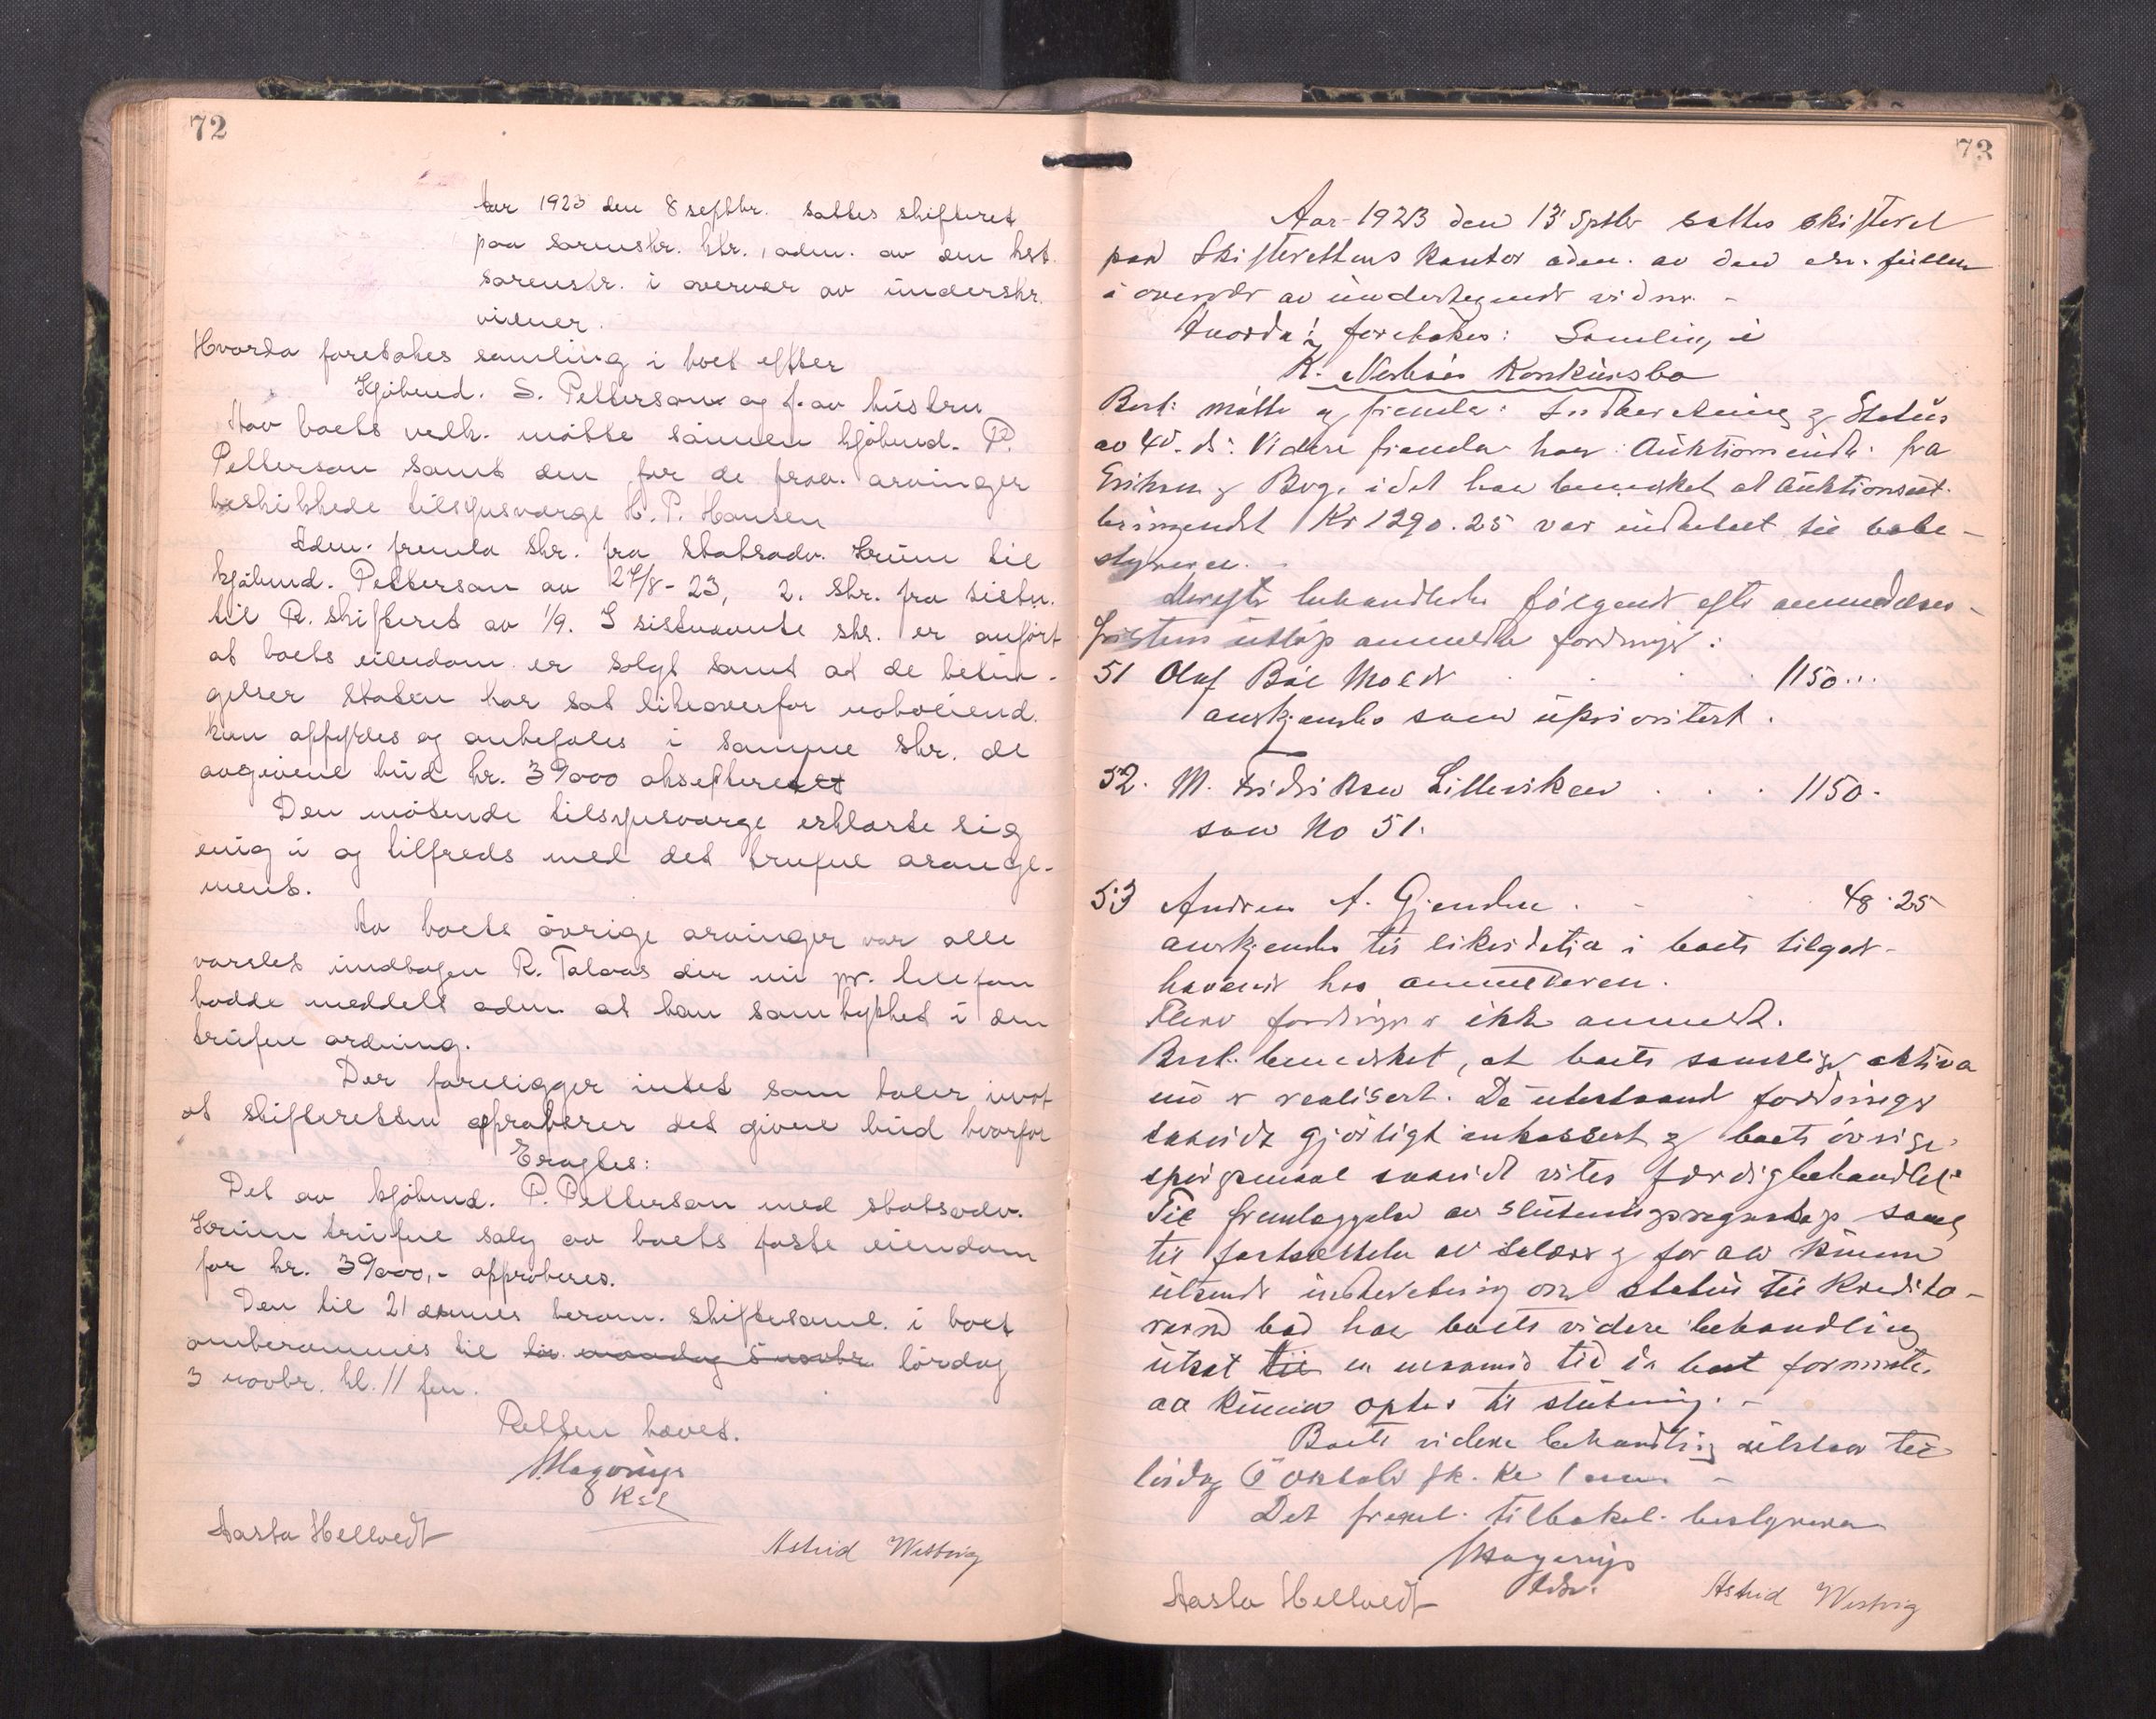 72
Aar 1923 den 8 septbr. sattes skifteret
paa sorenskr. ktr., adm. av den kst.
sorenskr. i overvær av underskr.
vidner.
Hvorda foretokes samling i boet efter
Kjøbmd. S. Petterson og f. av hustru
For boets vedk. møtte sønnen kjøbmd. P.
Petterson samt den for de frav. arvinger
beskikkede tilsynsværge H. P. Hansen
Adm. fremla skr. fra statsadv. Grüm til
kjøbmd. Petterson av 27/8-23, 2. skr. fra sistn.
til R. skifteret av 1/9. I sistnævnte skr. er anført
at boets eiendom er solgt samt at de betin-
gelser staten har sat likeoverfor naboeiend.
kan opfyldes og anbefales i samme skr. de
avgivene bud kr. 39000 aksepteret
Den møtende tilsynsværge erklærte sig
enig i og tilfreds med det trufne arange-
ment.
Av boets øvrige arvinger var alle
varslet undtagen R. Talaas der nu pr. telefon
hadde meddelt adm. at han samtykket i den
trufne ordning.
Der foreligger intet som taler imot
at skifteretten approberer det givne bud hvorfor
Eragtes:
Det av kjøbmd. P. Petterson med statsadv.
Grüm trufne salg av boets faste eiendom
for kr. 39000,- approberes.
Den til 21 dennes beram. skiftesaml. i boet
omberammes til mandag 5 novbr. lørdag
3 novbr. kl. 11 fm.
Retten hævet.
Aasta Hellvedt
Astrid Westvig
73
Aar 1923 den 13 Sptbr sattes skifteret
paa Skifterettens kontor adm. av den
i overvær av undertegnede vidner. -
Hvorda foretokes: Samling i
K. Konkursbo
Best. møtte og fremla: Indberetning og Status
av ds. Videre fremla han Auktionsindb. fra
Eriksen & Bog, idet han bemerket at auktionsut-
bringendet Kr 1290.25 var indbetalt til bobe-
styreren.
Derefter behandledes følgende efter anmeldelses-
fristens utløp anmeldte fordringer:
51 Olaf Bøe Molde 1150...
anerkjendes som uprioritert.
52. M. Fridriksen Lillevikan 1150.
som No 51.
53 Andreas A. Gjendem 48.25
anerkjendes til likvidation i boets tilgode-
havende hos anmelderen.
Flere fordringer er ikke anmeldt.
Best. bemerket, at boets samtlige aktiva
nu er realisert. De utestaaende fordringer
saavidt gjørligt inkassert og boets øvrige
spørgsmaal saavidt vites færdigbehandlet.
Til fremlæggelse av slutningsregnskap samt
til fastsettelse av salær og for at kunne
utsende indberetning om status til kredito-
rerne bad han boets videre behandling
utsat til en maaned tid da boet formentl.
aa kunne optas til slutning. -
Boets videre behandling utstaar til
lørdag 6 oktobr fk. kl 1 em. -
Det fremel. tilbakel. bestyreren
Aasta Hellvedt
Astrid Westvig